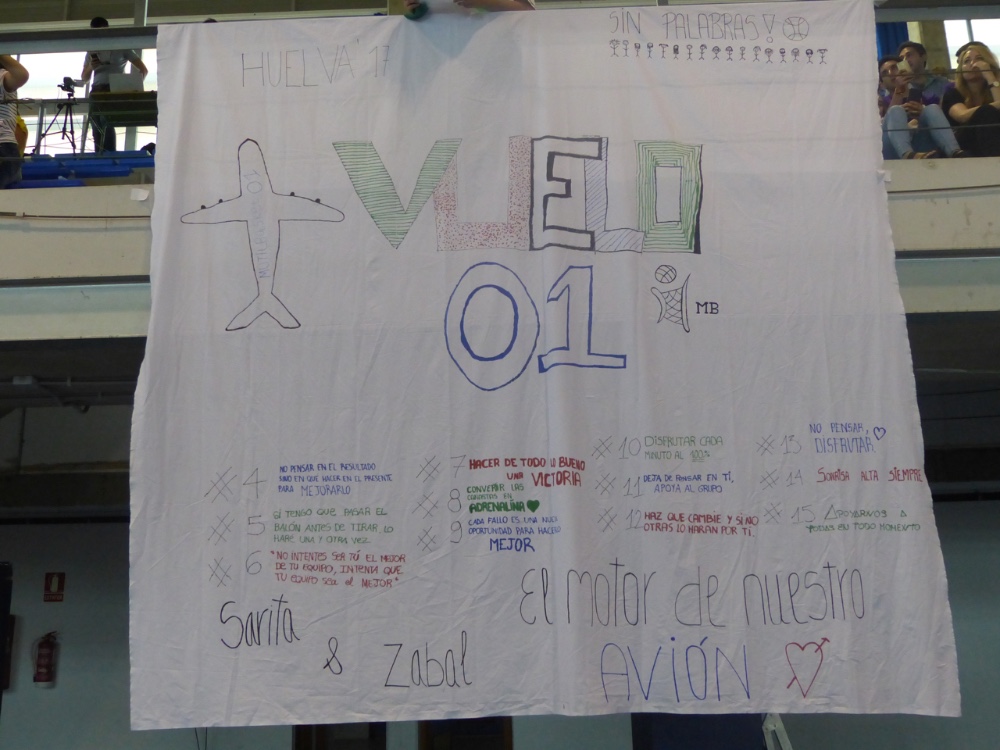 HUELVA '17
SIN PALABRAS!
VUELO
01
MB
#4 NO PENSAR EN EL RESULTADO
SINO EN QUE HACER EN EL PRESENTE
PARA MEJORARLO
#5 SI TENGO QUE PASAR EL
BALÓN ANTES DE TIRAR LO
HARE UNA Y OTRA VEZ.
#6 "NO INTENTES SER TÚ EL MEJOR
DE TU EQUIPO, INTENTA QUE
TU EQUIPO SEA el MEJOR"
#7 HACER DE TODO LO BUENO
UNA VICTORIA
#8 CONVERTIR LAS
EN
ADRENALINA
#9 CADA FALLO ES UNA
OPORTUNIDAD PARA HACERLO
MEJOR
#10 DISFRUTAR CADA
MINUTO AL 100%
#11 DEJA DE PENSAR EN TÍ,
APOYA AL GRUPO
#12 HAZ QUE CAMBIE Y SI NO
OTRAS LO HARAN POR TI.
#13 NO PENSAR,
DISFRUTAR
#14 SONRISA ALTA SIEMPRE
#15 APOYARNOS A
TODAS EN TODO MOMENTO
Sarita
& Zabal
El motor de nuestro
AVIÓN